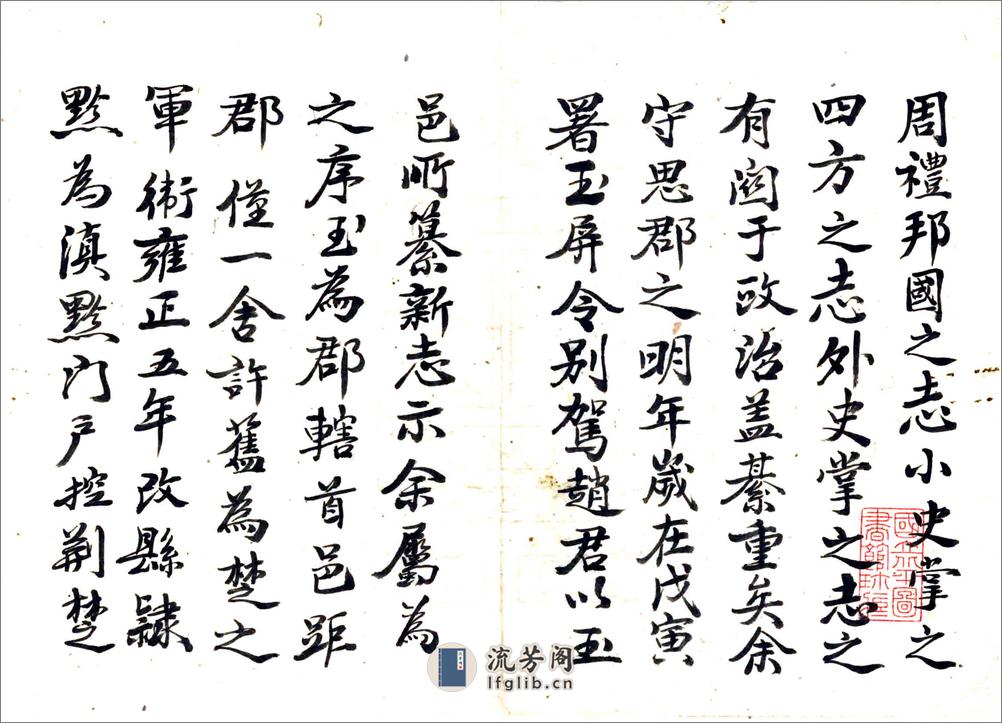 周禮邦國之志小史掌之
四方之志外史掌之志之
有關于政治蓋綦重矣余
守思郡之明年歲在戊寅
署玉屏令別駕趙君以玉
邑所纂新志示余屬為
之序玉為郡轄首邑距
郡僅一舍許舊為楚之
軍衛雍正五年改縣隸
黔為滇黔門戶控荆楚
流芳阁
lfglib.cn